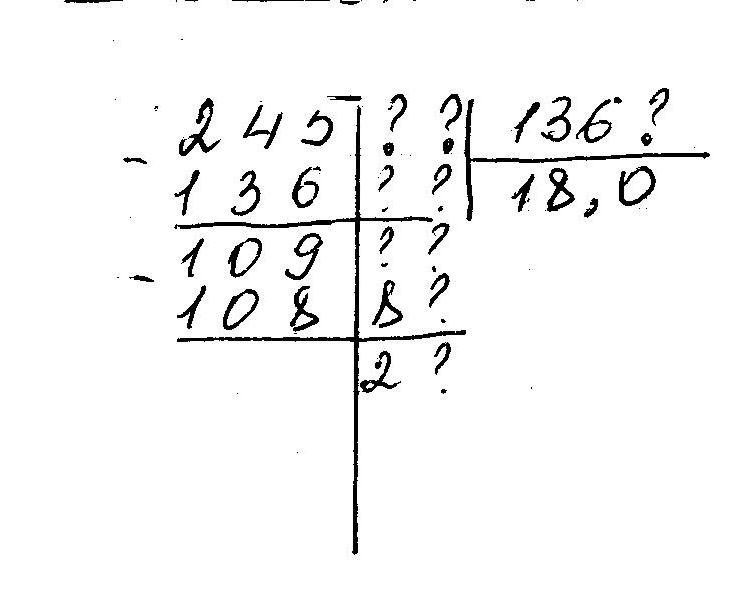 2 4 5 ? ? 136?
- 1 3 6 ? ? 18,0
1 0 9 ? ?
- 1 0 8 8 ?
2 ?